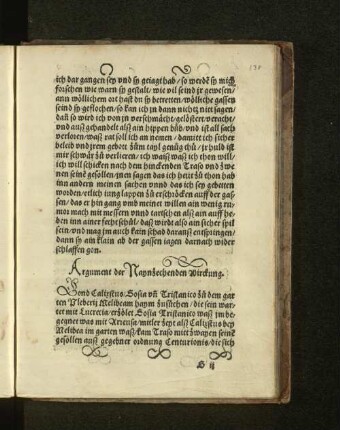 ich dar gangen sey vnd sy geiagt hab / so werdẽ sy mich
forschen wie warn sy gestalt / wie vil seind jr gewesen /
ann wöllichem ort hast du sy betretten / wölliche gassen
seind sy geflochen / so kan ich jn dann nichtz nit sagen /
dañ so wird ich von jn verschmächt / gelöstert / veracht /
vnd auß gehandelt alß ain hippen bůb / vnd ist all sach
verloren / waß rat soll ich an nemen / damit ich sicher
beleib vnd jrem gebote zům tayl genůg thů / jr huld ist
mir schwär zů verlieren / ich waiß waß ich thon will /
ich will schicken nach dem hinckenden Traso vnd zwe
nen seinẽ gesollen / jnen sagen das ich heut zů thon hab
inn andern meinen sachen vnnd das ich sey gebetten
worden / etlich iung lappen zů erschröcken auff der gas-
sen / das er hin gang vnd meinet willen ain wenig ru-
mor mach mit messern vnnd tartschen alß ain auff he-
den inn ainer fechtschůl / daß wirdt also ain sicher spil
sein / vnd mag jm auch kain schad darauß entspringen /
dann sy ain klain ab der gassen iagen darnach wider
schlaffen gon.
Argument der Naynzehenden Würckung.
Calixstus / Sosia vñ Tristanico zů dem gar
ten Pleberij Melibeam haym zůsůchen / die sein war-
tet mit Lucrecia / erzölet Sosia Tristanico waß jm be-
gegnet was mit Areusa / mitler zeyt alß Calixstus bey
Melibea im garten waß / kam Traso mit zwayen seinẽ
gesollen auß gegebner ordnung Centurionis / die sich